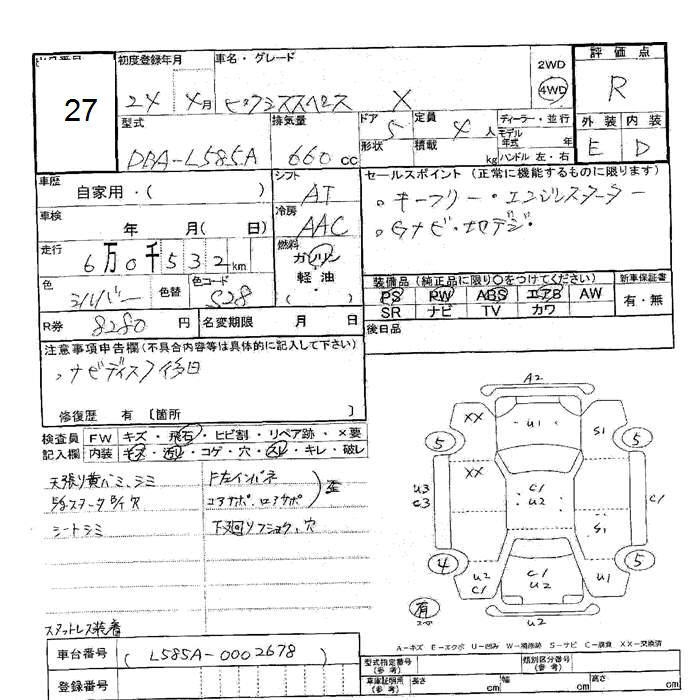 出品番号
27
初度登録年月
24 年 4月
車名・グレード
ピクシススペース X
2WD
4WD
評価点
R
型式
DBA-L585A
排気量
660 cc
ドア
5
形状
定員
4 人
積載
kg
ディーラー・並行
モデル年式 年
ハンドル 左・右
外装 内装
E D
車歴
自家用・( )
シフト
AT
セールスポイント (正常に機能するものに限ります)
。キーフリー・エンジンスターター
。Gナビ・地デジ・
車検
年 月( 日)
冷房
AAC
走行
6万0千532km
燃料
ガソリン
軽・油
( )
色
シルバー
色替
色コード
S28
装備品 (純正品に限り○をつけてください)
PS PW ABS エアB AW
SR ナビ TV カワ
新車保証書
有・無
R券
8280 円
名変期限 月 日
後日品
注意事項申告欄 (不具合内容等は具体的に記入して下さい)
・ナビディスク後日
修復歴 有 〔箇所 〕
検査員 FW キズ・飛石・ヒビ割・リペア跡・×要
記入欄 内装 キズ・汚れ・コゲ・穴・スレ・キレ・破レ
天張り黄バミ、シミ
シートシミ
F左インパネ
コアサポ・ロアサポ 歪
下廻りフショク、穴
スタットレス装着
A2
XX
U1
S1
5
5
XX
U3
C3
C1
U2
C1
S1
4
5
U2
C1
C1
U2
U1
有
U2
A−キズ E−エクボ U−凹み W−補修跡 S−サビ C−腐食 XX−交換済
車台番号
( L585A-0002678 )
型式指定番号
(参考)
類別区分番号
(参考)
登録番号
車庫証明用
(参考)
長さ cm
幅 cm
高さ cm